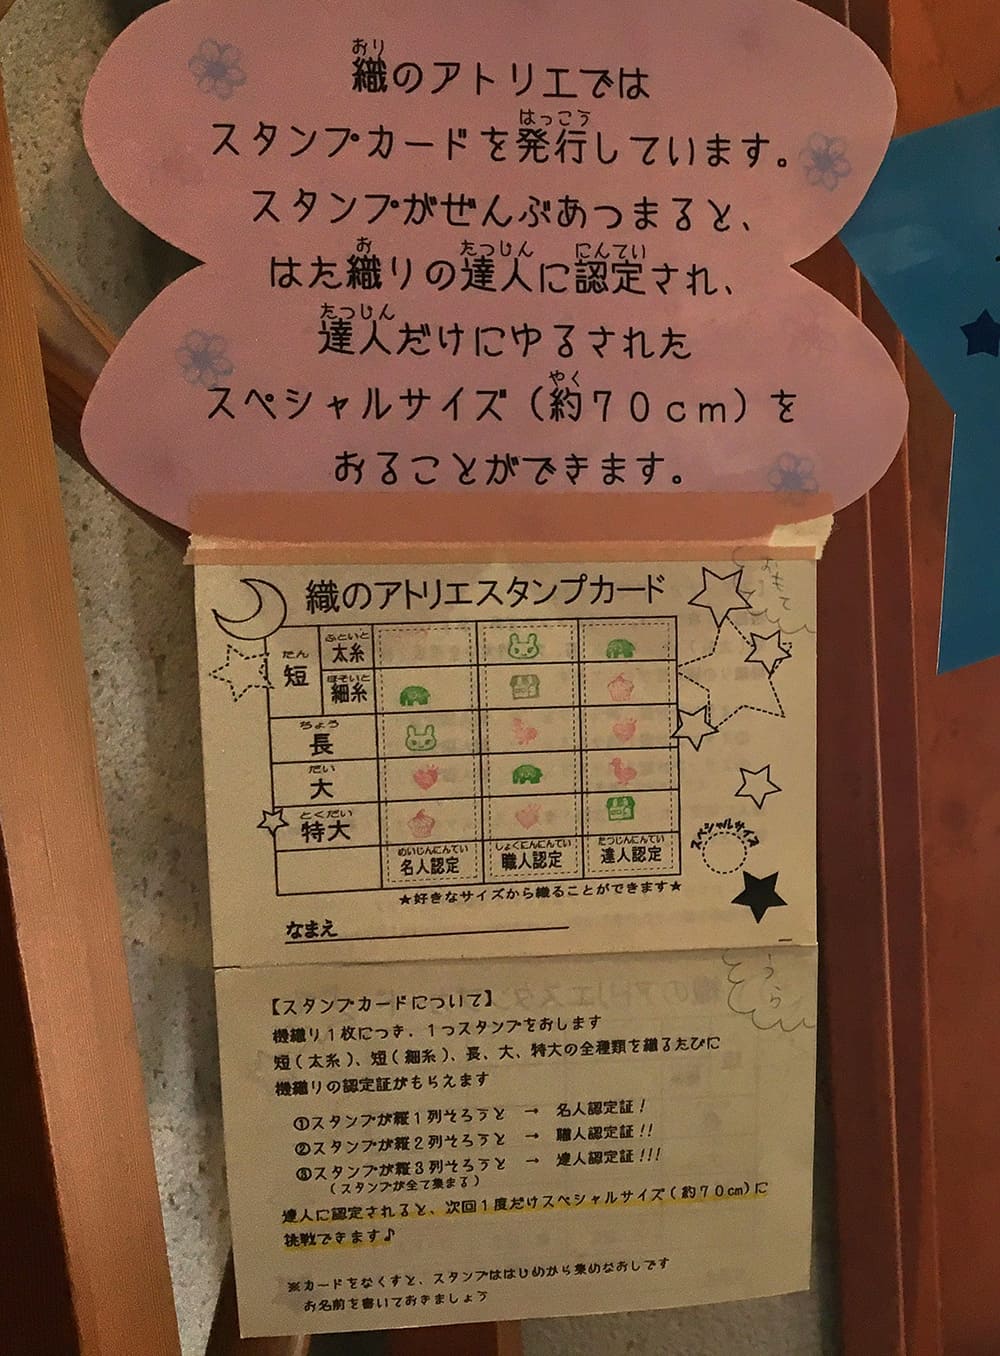 織のアトリエでは
おり
スタンプカードを発行しています。
はっこう
スタンプがぜんぶあつまると、
はた織りの達人に認定され、
お たつじん にんてい
達人だけにゆるされた
たつじん
スペシャルサイズ(約70cm)を
やく
おることができます。
おもて
織のアトリエスタンプカード
短 太糸
たん ふといと
細糸
ほそいと
長
ちょう
大
だい
特大
とくだい
名人認定 職人認定 達人認定
めいじんにんてい しょくにんにんてい たつじんにんてい
スペシャルサイズ
★好きなサイズから織ることができます★
なまえ
うら
【スタンプカードについて】
機織り1枚につき、1つスタンプをおします
短(太糸)、短(細糸)、長、大、特大の全種類を織るたびに
機織りの認定証がもらえます
①スタンプが縦1列そろうと → 名人認定証!
②スタンプが縦2列そろうと → 職人認定証!!
③スタンプが縦3列そろうと → 達人認定証!!!
(スタンプが全て集まる)
達人に認定されると、次回1度だけスペシャルサイズ(約70cm)に
挑戦できます♪
※カードをなくすと、スタンプははじめから集めなおしです
お名前を書いておきましょう